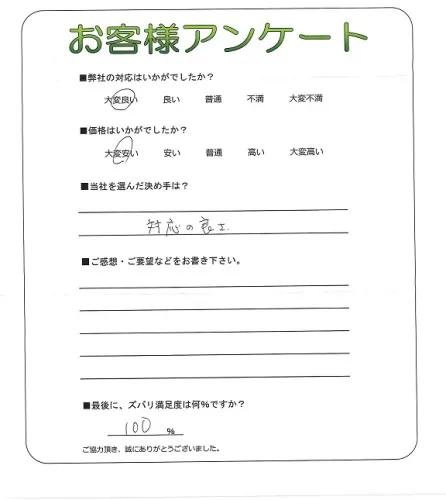 お客様アンケート
■弊社の対応はいかがでしたか？
大変良い 良い 普通 不満 大変不満
■価格はいかがでしたか？
大変安い 安い 普通 高い 大変高い
■当社を選んだ決め手は？
対応の良さ
■ご感想・ご要望などをお書き下さい。
■最後に、ズバリ満足度は何%ですか？
100 %
ご協力頂き、誠にありがとうございました。